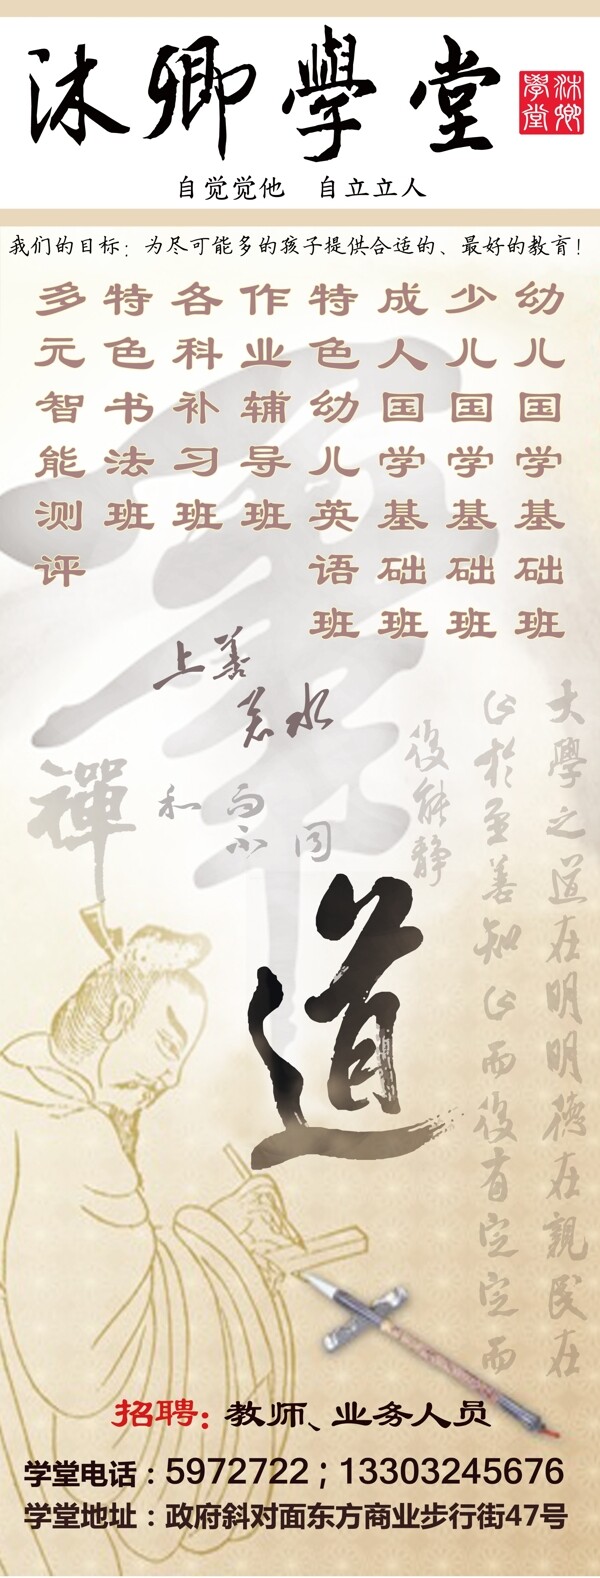 沐卿學堂
沐卿
學堂
自觉觉他 自立立人
我们的目标：为尽可能多的孩子提供合适的、最好的教育！
幼儿国学基础班
少儿国学基础班
成人国学基础班
特色幼儿英语班
作业辅导班
各科补习班
特色书法班
多元智能测评
上善
若水
禪
和而不同
大學之道在明明德在親民在
止於至善知止而後有定定而
後能静
道
招聘：教师、业务人员
学堂电话：5972722；13303245676
学堂地址：政府斜对面东方商业步行街47号